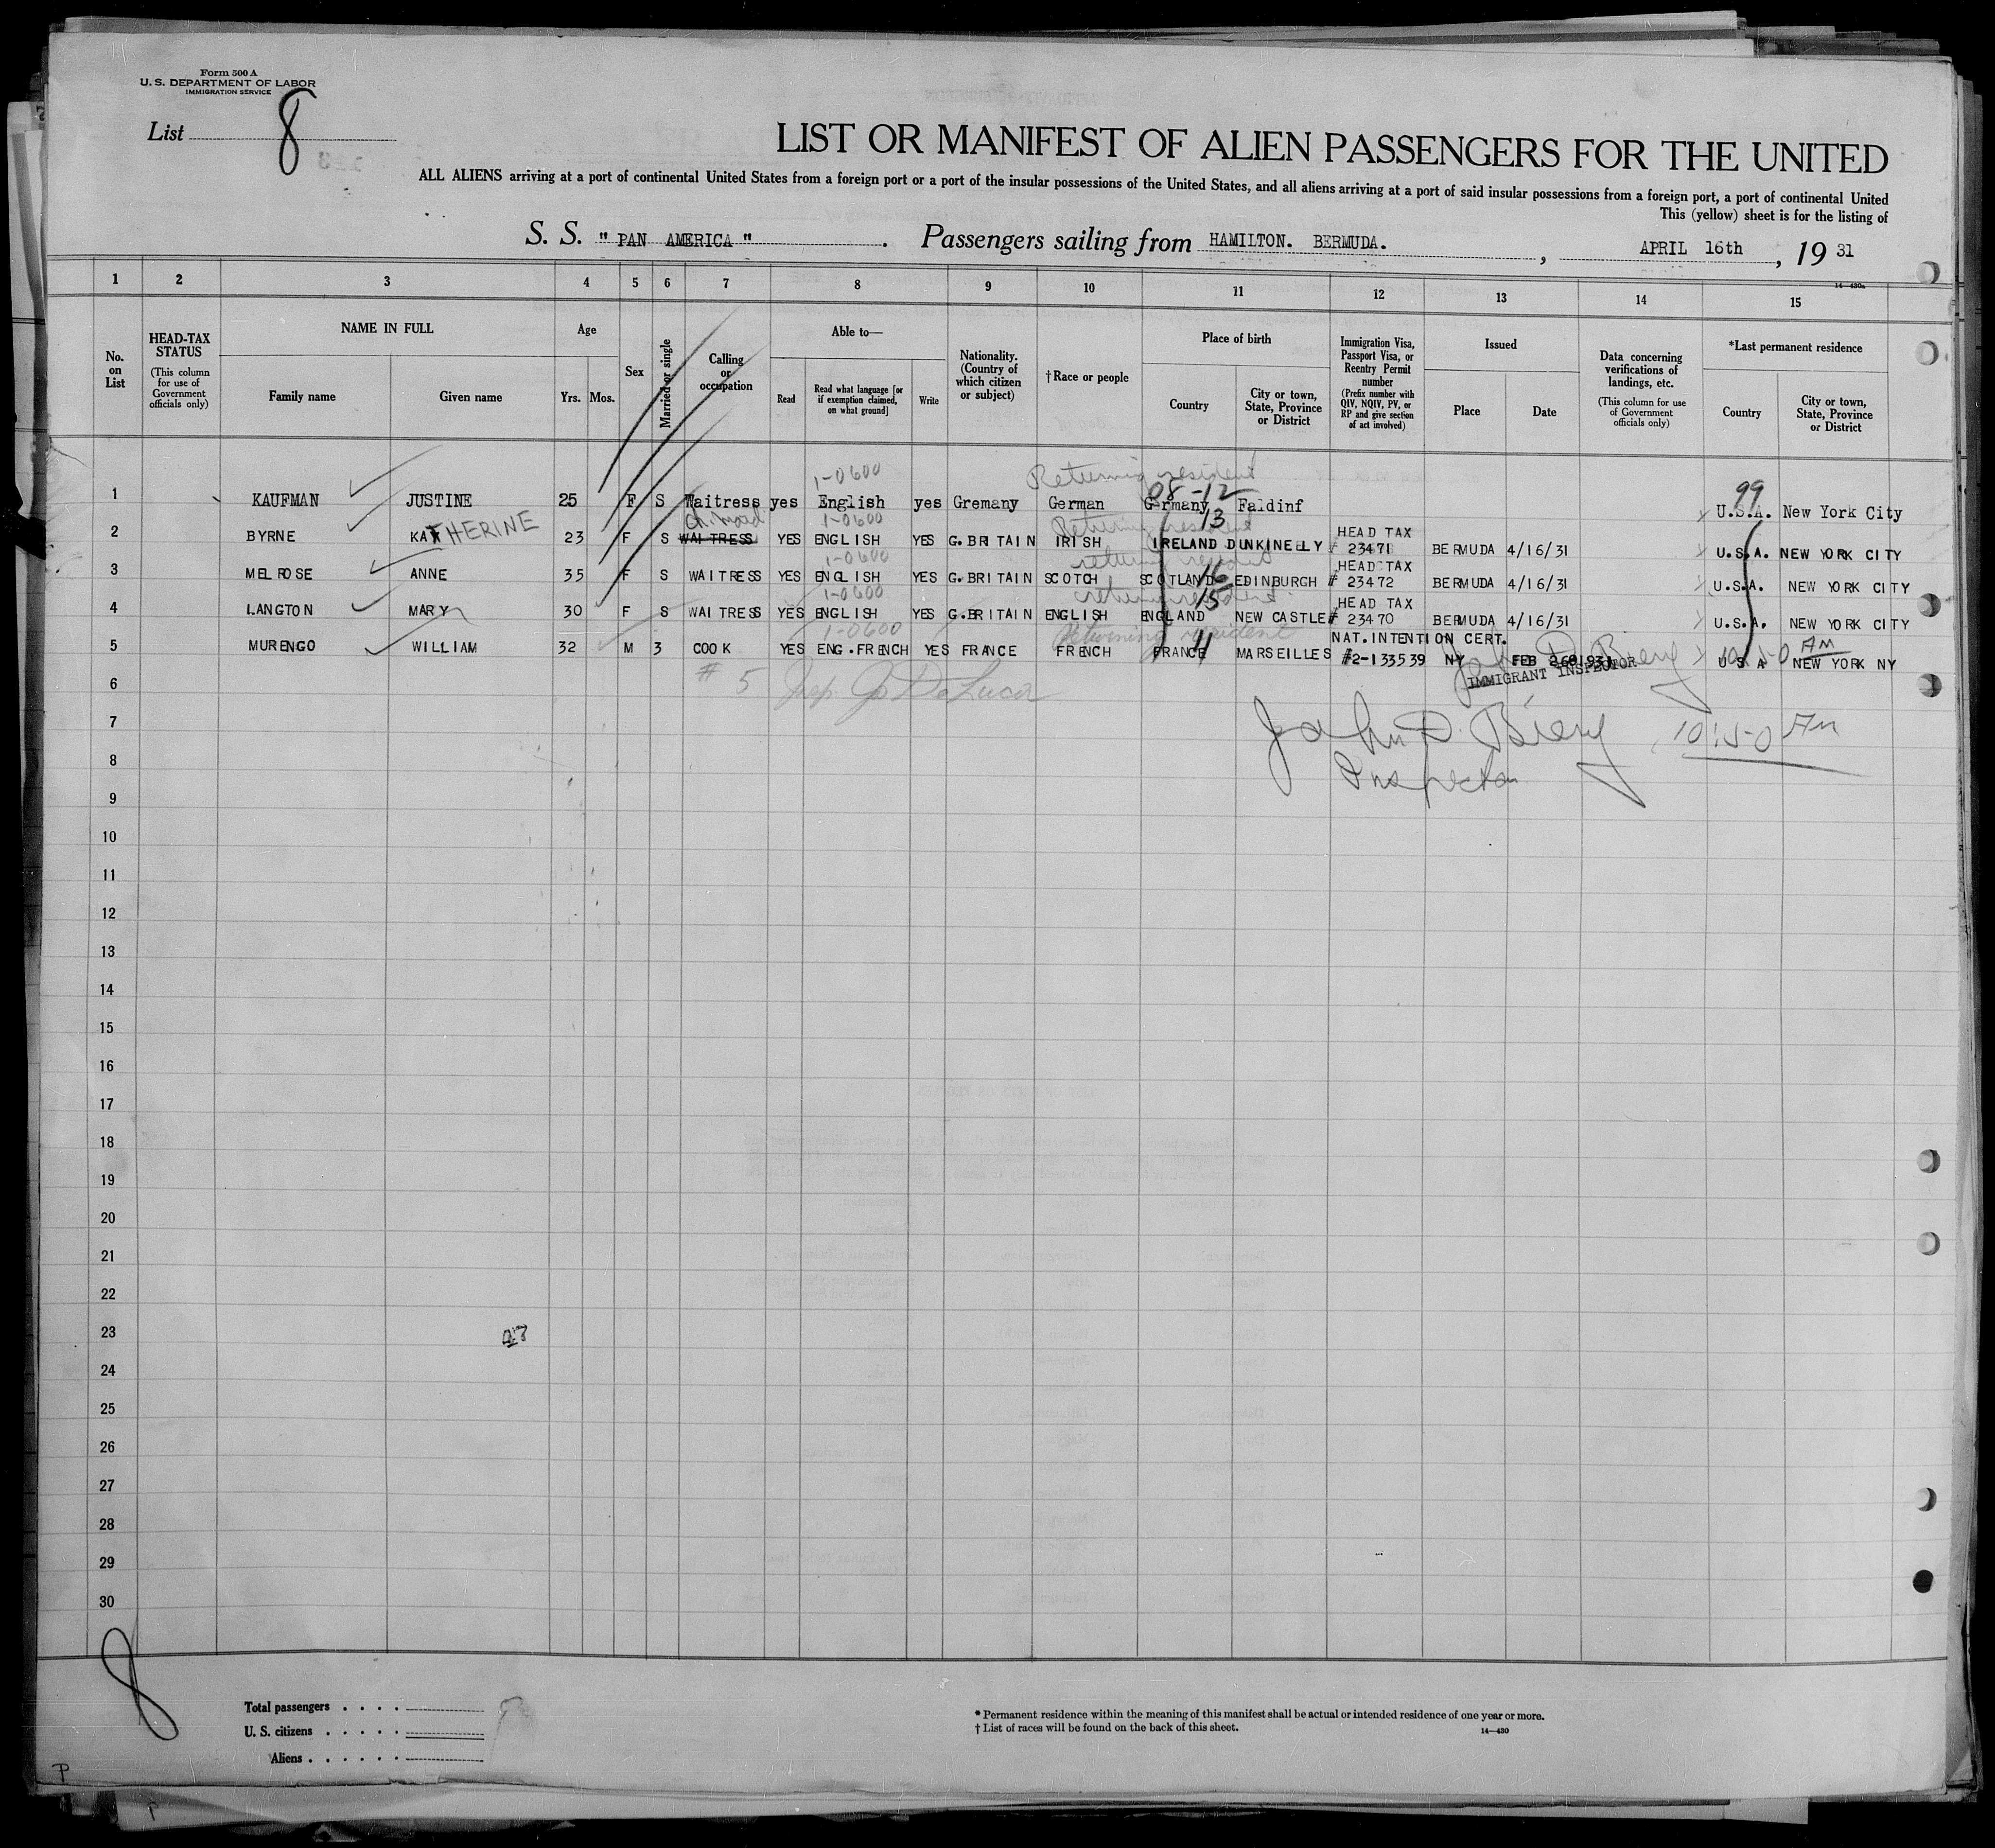 Form 500 A
U. S. DEPARTMENT OF LABOR
IMMIGRATION SERVICE
List 8
LIST OR MANIFEST OF ALIEN PASSENGERS FOR THE UNITED
ALL ALIENS arriving at a port of continental United States from a foreign port or a port of the insular possessions of the United States, and all aliens arriving at a port of said insular possessions from a foreign port, a port of continental United
This (yellow) sheet is for the listing of
S. S. " PAN AMERICA " . Passengers sailing from HAMILTON. BERMUDA. , APRIL 16th , 19 31
14—430a
1 2 3 4 5 6 7 8 9 10 11 12 13 14 15
No. on List
HEAD-TAX STATUS (This column for use of Government officials only)
NAME IN FULL
Family name
Given name
Age
Yrs.
Mos.
Sex
Married or single
Calling or occupation
Able to—
Read
Read what language [or if exemption claimed, on what ground]
Write
Nationality. (Country of which citizen or subject)
†Race or people
Place of birth
Country
City or town, State, Province or District
Immigration Visa, Passport Visa, or Reentry Permit number (Prefix number with QIV, NQIV, PV, or RP and give section of act involved)
Issued
Place
Date
Data concerning verifications of landings, etc. (This column for use of Government officials only)
*Last permanent residence
Country
City or town, State, Province or District
1-0600 Returning resident 08-12 99
1 KAUFMAN JUSTINE 25 F S Waitress yes English yes Gremany German Germany Faldinf U.S.A. New York City
1-0600 Returning resident 13
2 BYRNE KATHERINE 23 F S WAITRESS YES ENGLISH YES G.BRITAIN IRISH IRELAND DUNKINELLY HEAD TAX # 23471 BERMUDA 4/16/31 U.S.A. NEW YORK CITY
1-0600 returning resident
3 MELROSE ANNE 35 F S WAITRESS YES ENGLISH YES G.BRITAIN SCOTCH SCOTLAND 16 EDINBURGH HEAD TAX # 23472 BERMUDA 4/16/31 U.S.A. NEW YORK CITY
1-0600 returning resident 15
4 LANGTON MARY 30 F S WAITRESS YES ENGLISH YES G.BRITAIN ENGLISH ENGLAND NEW CASTLE HEAD TAX # 23470 BERMUDA 4/16/31 U.S.A. NEW YORK CITY
1-0600 Returning resident 11
5 MURENGO WILLIAM 32 M 3 COOK YES ENG.FRENCH YES FRANCE FRENCH FRANCE MARSEILLES NAT.INTENTION CERT. #2-133539 NY FEB U S A NEW YORK NY
John D. Biery 10:50 AM
IMMIGRANT INSPECTOR
6 # 5 Insp. De Luca
7 John D. Biery 10:50 AM
8 Inspector
9
10
11
12
13
14
15
16
17
18
19
20
21
22
23 47
24
25
26
27
28
29
30
8
Total passengers . . . .
U. S. citizens . . . . .
Aliens . . . . . .
* Permanent residence within the meaning of this manifest shall be actual or intended residence of one year or more.
† List of races will be found on the back of this sheet.
14—430
P
P